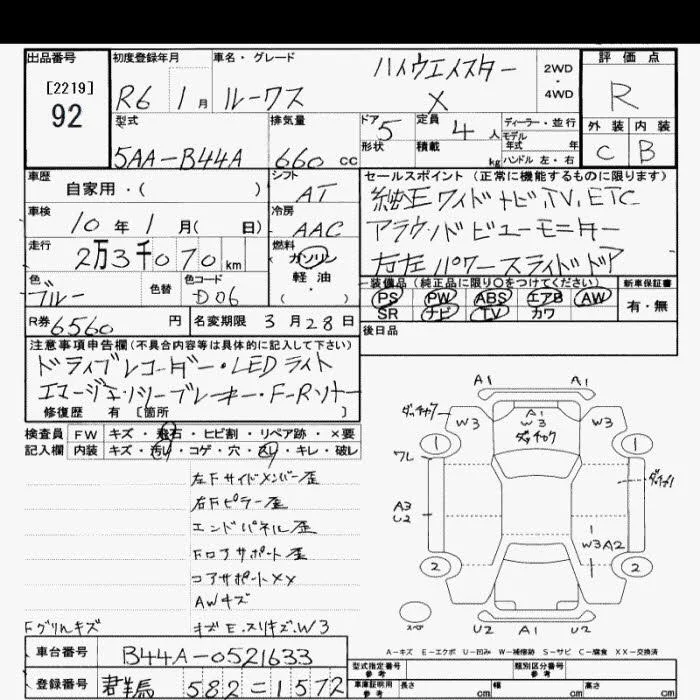 出品番号
[2219]
92
初度登録年月
R6 1月
車名・グレード
ハイウェイスター
ルークス X
2WD
・
4WD
評価点
R
外装 内装
C B
型式
5AA-B44A
排気量
660 cc
ドア 5
形状
定員 4 人
積載 kg
ディーラー・並行
モデル
年式 年
ハンドル 左・右
車歴
自家用・( )
シフト
AT
車検
10年1月( 日)
冷房
AAC
走行
2万3千070km
燃料
ガソリン
軽・油
色
ブルー
色替
色コード
D06
セールスポイント (正常に機能するものに限ります)
純正ワイドナビ,TV,ETC
アラウンドビューモニター
右左パワースライドドア
装備品 (純正品に限り〇をつけてください)
PS PW ABS エアB AW
SR ナビ TV カワ
新車保証書
有・無
R券 6560 円
名変期限 3月28日
後日品
注意事項申告欄(不具合内容等は具体的に記入して下さい)
ドライブレコーダー・LEDライト
エマージェンシーブレーキ・F-Rソナー
修復歴 有 [箇所 ]
検査員 FW キズ・飛石・ヒビ割・リペア跡・×要
記入欄 内装 キズ・汚れ・コゲ・穴・スレ・キレ・破レ
左Fサイドメンバー歪
右Fピラー歪
エンドパネル歪
Fロアサポート歪
コアサポートXX
AWキズ
Fグリルキズ
キズE.スリキズ.W3
A1 A1
ダッチャク
W3
A1
W3
ダッチャク
W3
1 1
ワレ
ダッチャク
A3
U2
W3A2
2 2
スペ
U2 A1 U2
A-キズ E-エクボ U-凹み W-補修跡 S-サビ C-腐食 XX-交換済
車台番号
B44A-0521633
登録番号
群馬 582 = 1572
型式指定番号
参考
類別区分番号
参考
車庫証明用
参考
長さ cm
幅 cm
高さ cm